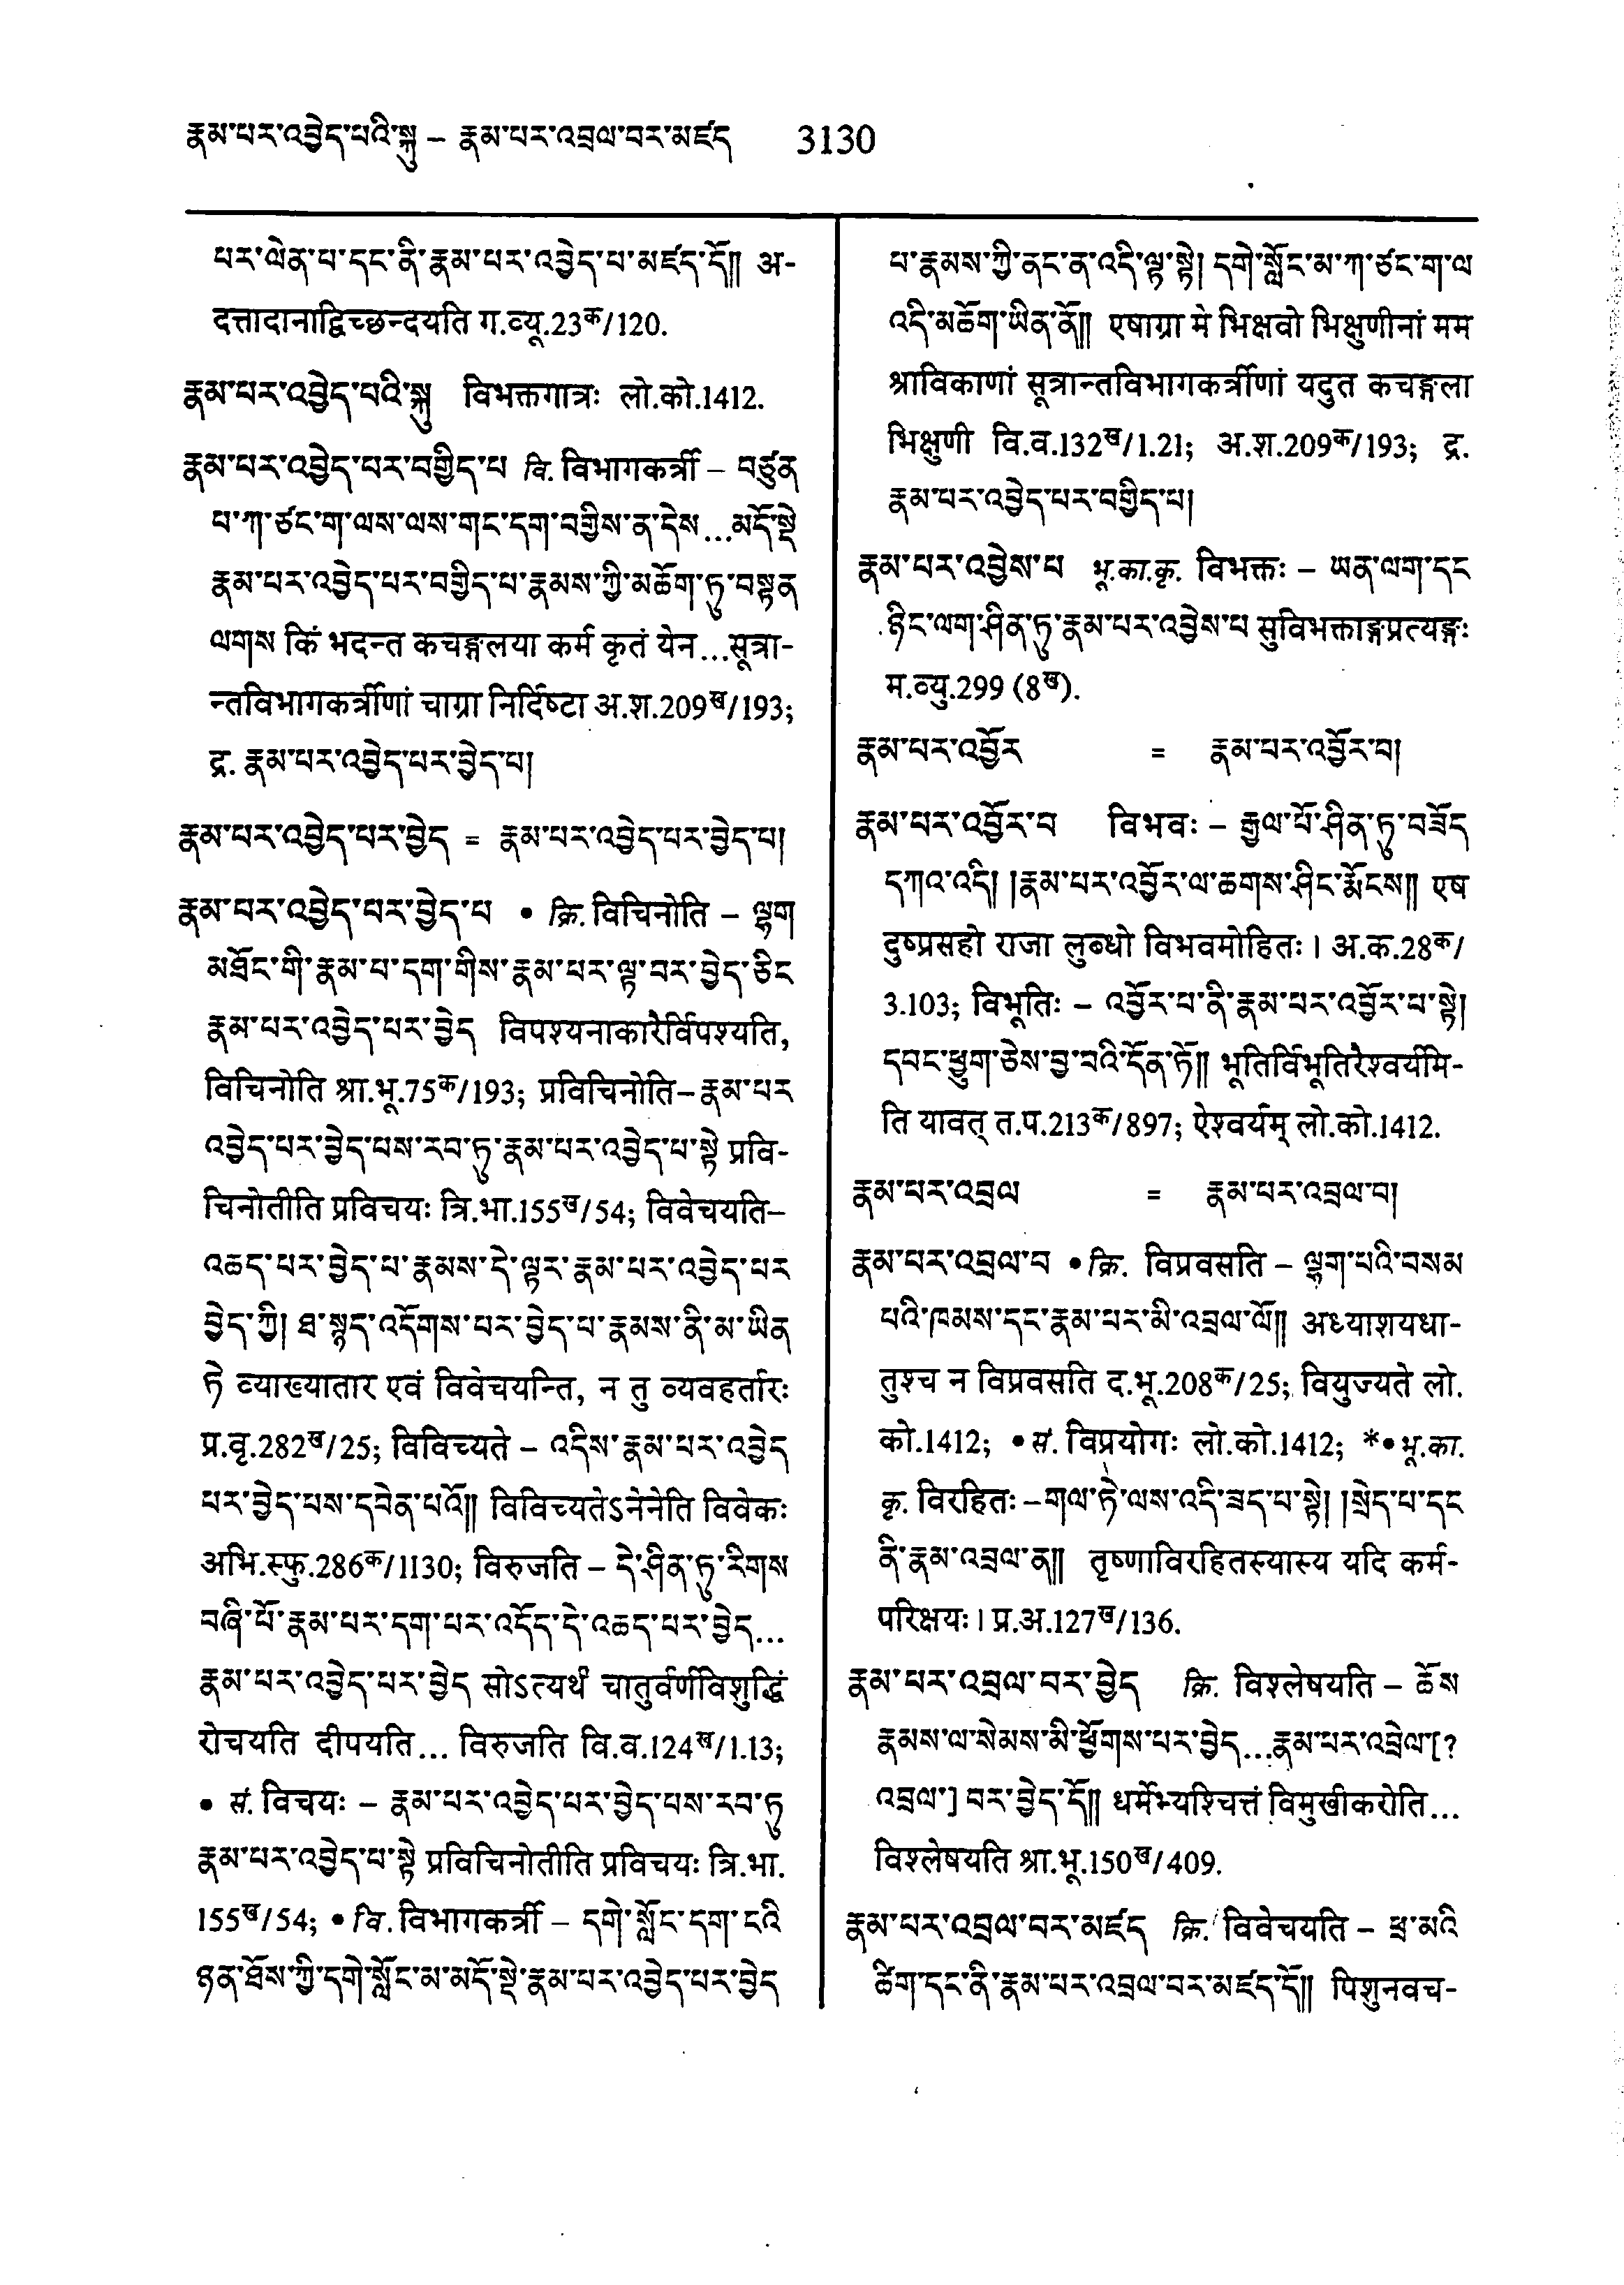 རྣམ་པར་འབྱེད་པའི་སྐུ – རྣམ་པར་འབྲལ་བར་མཛད 3130
པར་ལེན་པ་དང་ནི་རྣམ་པར་འབྱེད་པ་མཛད་དོ༎ अ-
दत्तादानाद्विच्छन्दयति ग.व्यू.23क/120.
རྣམ་པར་འབྱེད་པའི་སྐུ विभक्तगात्रः लो.को.1412.
རྣམ་པར་འབྱེད་པར་བགྱིད་པ वि. विभागकर्त्री – བཙུན
པ་ཀ་ཙང་ག་ལས་ལས་གང་དག་བགྱིས་ན་དེས...མདོ་སྡེ
རྣམ་པར་འབྱེད་པར་བགྱིད་པ་རྣམས་ཀྱི་མཆོག་ཏུ་བསྟན
ལགས किं भदन्त कचङ्गलया कर्म कृतं येन...सूत्रा-
न्तविभागकर्त्रीणां चाग्रा निर्दिष्टा अ.श.209ख/193;
द्र. རྣམ་པར་འབྱེད་པར་བྱེད་པ།
རྣམ་པར་འབྱེད་པར་བྱེད = རྣམ་པར་འབྱེད་པར་བྱེད་པ།
རྣམ་པར་འབྱེད་པར་བྱེད་པ • क्रि. विचिनोति – ལྷག
མཐོང་གི་རྣམ་པ་དག་གིས་རྣམ་པར་ལྟ་བར་བྱེད་ཅིང
རྣམ་པར་འབྱེད་པར་བྱེད विपश्यनाकारैर्विपश्यति,
विचिनोति श्रा.भू.75क/193; प्रविचिनोति – རྣམ་པར
འབྱེད་པར་བྱེད་པས་རབ་ཏུ་རྣམ་པར་འབྱེད་པ་སྟེ प्रवि-
चिनोतीति प्रविचयः त्रि.भा.155ख/54; विवेचयति –
འཆད་པར་བྱེད་པ་རྣམས་དེ་ལྟར་རྣམ་པར་འབྱེད་པར
བྱེད་ཀྱི། ཐ་སྙད་འདོགས་པར་བྱེད་པ་རྣམས་ནི་མ་ཡིན
ཏེ व्याख्यातार एवं विवेचयन्ति, न तु व्यवहर्तारः
प्र.वृ.282ख/25; विविच्यते – འདིས་རྣམ་པར་འབྱེད
པར་བྱེད་པས་དབེན་པའོ༎ विविच्यतेऽनेनेति विवेकः
अभि.स्फु.286क/1130; विरुजति – དེ་ཤིན་ཏུ་རིགས
བཞི་པོ་རྣམ་པར་དག་པར་འདོད་དེ་འཆད་པར་བྱེད...
རྣམ་པར་འབྱེད་པར་བྱེད सोऽत्यर्थं चातुर्वर्णविशुद्धिं
रोचयति दीपयति... विरुजति वि.व.124ख/1.13;
• सं. विचयः – རྣམ་པར་འབྱེད་པར་བྱེད་པས་རབ་ཏུ
རྣམ་པར་འབྱེད་པ་སྟེ प्रविचिनोतीति प्रविचयः त्रि.भा.
155ख/54; • वि. विभागकर्त्री – དགེ་སློང་དག་ངའི
ཉན་ཐོས་ཀྱི་དགེ་སློང་མ་མདོ་སྡེ་རྣམ་པར་འབྱེད་པར་བྱེད
པ་རྣམས་ཀྱི་ནང་ན་འདི་ལྟ་སྟེ། དགེ་སློང་མ་ཀ་ཙང་ག་ལ
འདི་མཆོག་ཡིན་ནོ༎ एषाग्रा मे भिक्षवो भिक्षुणीनां मम
श्राविकाणां सूत्रान्तविभागकर्त्रीणां यदुत कचङ्गला
भिक्षुणी वि.व.132ख/1.21; अ.श.209क/193; द्र.
རྣམ་པར་འབྱེད་པར་བགྱིད་པ།
རྣམ་པར་འབྱེས་པ भू.का.कृ. विभक्तः – ཡན་ལག་དང
ཉིང་ལག་ཤིན་ཏུ་རྣམ་པར་འབྱེས་པ सुविभक्ताङ्गप्रत्यङ्गः
म.व्यु.299 (8ख).
རྣམ་པར་འབྱོར = རྣམ་པར་འབྱོར་བ།
རྣམ་པར་འབྱོར་བ विभवः – རྒྱལ་པོ་ཤིན་ཏུ་བཟོད
དཀའ་འདི། །རྣམ་པར་འབྱོར་ལ་ཆགས་ཤིང་རྨོངས༎ एष
दुष्प्रसहो राजा लुब्धो विभवमोहितः । अ.क.28क/
3.103; विभूतिः – འབྱོར་པ་ནི་རྣམ་པར་འབྱོར་པ་སྟེ།
དབང་ཕྱུག་ཅེས་བྱ་བའི་དོན་ཏོ༎ भूतिर्विभूतिरैश्वर्यमि-
ति यावत् त.प.213क/897; ऐश्वर्यम् लो.को.1412.
རྣམ་པར་འབྲལ = རྣམ་པར་འབྲལ་བ།
རྣམ་པར་འབྲལ་བ • क्रि. विप्रवसति – ལྷག་པའི་བསམ
པའི་ཁམས་དང་རྣམ་པར་མི་འབྲལ་ལོ༎ अध्याशयधा-
तुश्च न विप्रवसति द.भू.208क/25; वियुज्यते लो.
को.1412; • सं. विप्रयोगः लो.को.1412; *• भू.का.
कृ. विरहितः – གལ་ཏེ་ལས་འདི་ཟད་པ་སྟེ། །སྲེད་པ་དང
ནི་རྣམ་འབྲལ་ན༎ तृष्णाविरहितस्यास्य यदि कर्म-
परिक्षयः । प्र.अ.127ख/136.
རྣམ་པར་འབྲལ་བར་བྱེད क्रि. विश्लेषयति – ཆོས
རྣམས་ལ་སེམས་མི་ཕྱོགས་པར་བྱེད...རྣམ་པར་འབྲེལ་[?
འབྲལ་] བར་བྱེད་དོ༎ धर्मेभ्यश्चित्तं विमुखीकरोति...
विश्लेषयति श्रा.भू.150ख/409.
རྣམ་པར་འབྲལ་བར་མཛད क्रि. विवेचयति – ཕྲ་མའི
ཚིག་དང་ནི་རྣམ་པར་འབྲལ་བར་མཛད་དོ༎ पिशुनवच-